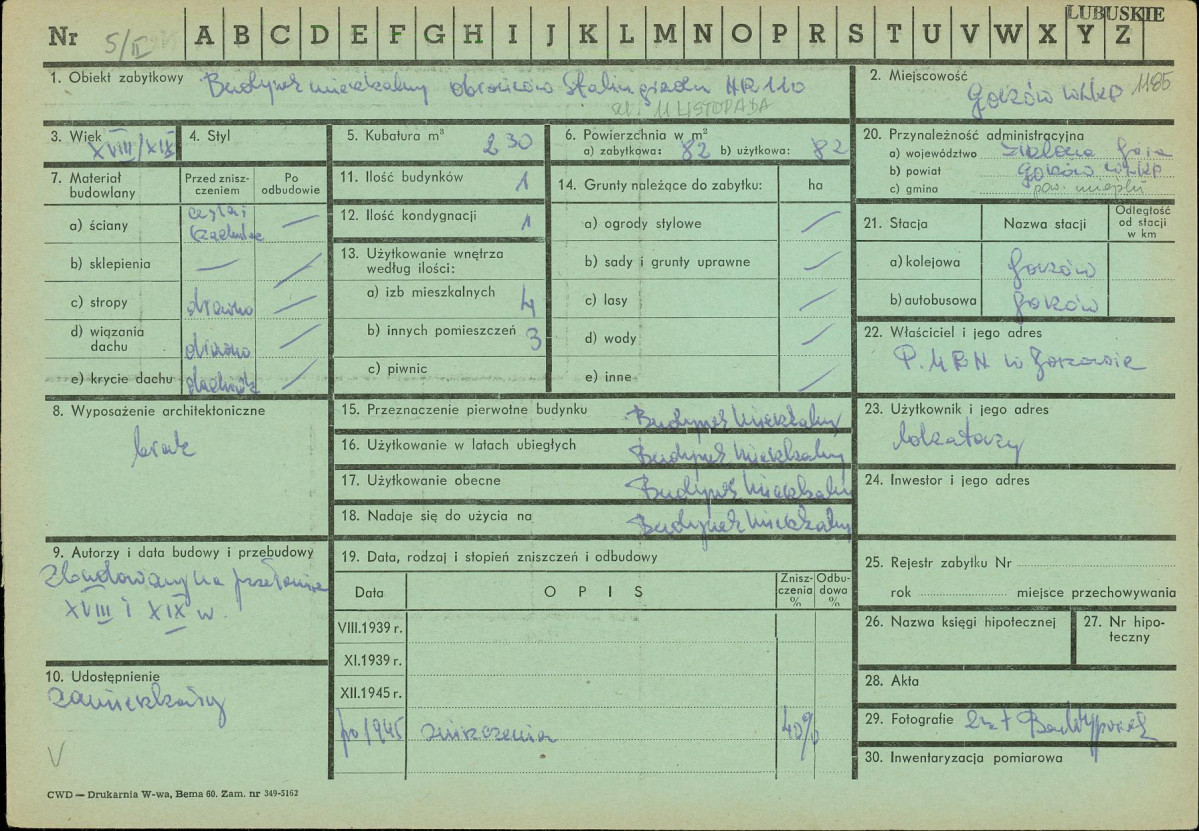 LUBUSKIE
Nr 5/II A B C D E F G H I J K L M N O P R S T U V W X Y Z
1. Obiekt zabytkowy Budynek mieszkalny obrońców Stalingradu NR 110
ul. 11 LISTOPADA
2. Miejscowość 1185
Gorzów Wlkp
3. Wiek XVIII/XIX
4. Styl
5. Kubatura m³ 230
6. Powierzchnia w m²
a) zabytkowa: 82 b) użytkowa: 82
7. Materiał budowlany
Przed zniszczeniem
Po odbudowie
a) ściany cegła i —
b) sklepienia — —
c) stropy drewno —
d) wiązania dachu drewno —
e) krycie dachu dachówk —
8. Wyposażenie architektoniczne
brak
9. Autorzy i data budowy i przebudowy
Zbudowany na przełomie
XVIII i XIX w.
10. Udostępnienie
zamieszkały
V
11. Ilość budynków 1
12. Ilość kondygnacji 1
13. Użytkowanie wnętrza
według ilości:
a) izb mieszkalnych 4
b) innych pomieszczeń 3
c) piwnic
14. Grunty należące do zabytku: ha
a) ogrody stylowe —
b) sady i grunty uprawne —
c) lasy —
d) wody —
e) inne —
15. Przeznaczenie pierwotne budynku Budynek Mieszkalny
16. Użytkowanie w latach ubiegłych Budynek Mieszkalny
17. Użytkowanie obecne Budynek Mieszkalny
18. Nadaje się do użycia na Budynek Mieszkalny
19. Data, rodzaj i stopień zniszczeń i odbudowy
Data OPIS Zniszczenia % Odbudowa %
VIII.1939 r.
XI.1939 r.
XII.1945 r.
po 1945 zniszczenia 40%
20. Przynależność administracyjna
a) województwo Zielona Góra
b) powiat Gorzów Wlkp
c) gmina pow. miejski
21. Stacja Nazwa stacji Odległość od stacji w km
a) kolejowa Gorzów
b) autobusowa Gorzów
22. Właściciel i jego adres
P.MRN w Gorzowie
23. Użytkownik i jego adres
lokatorzy
24. Inwestor i jego adres
25. Rejestr zabytku Nr
rok miejsce przechowywania
26. Nazwa księgi hipotecznej
27. Nr hipoteczny
28. Akta
29. Fotografie
30. Inwentaryzacja pomiarowa
CWD — Drukarnia W-wa, Bema 60. Zam. nr 349-5162